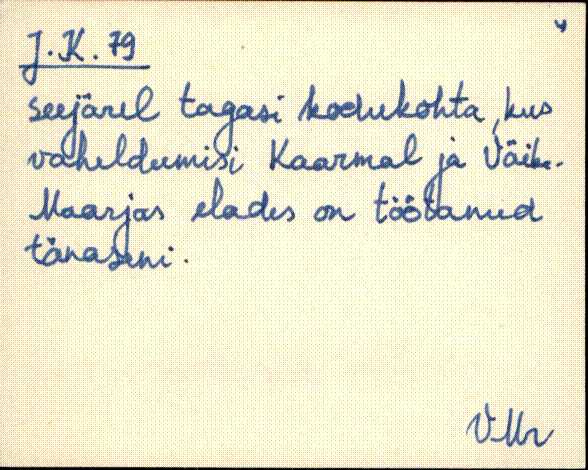 4
J.K. 79
seejärel tagasi kodukohta, kus
vaheldumisi Kaarmal ja Väike-
Maarjas elades on töötanud
tänaseni.